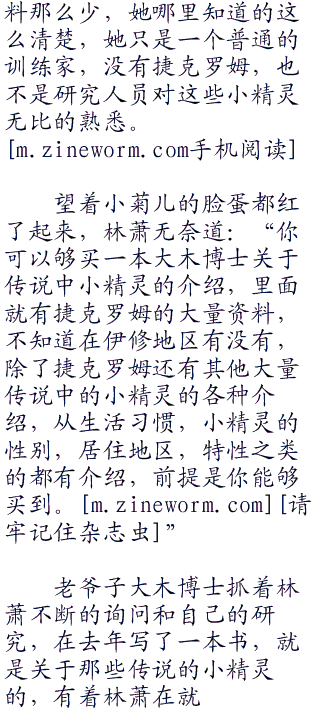 料那么少，她哪里知道的这
么清楚，她只是一个普通的
训练家，没有捷克罗姆，也
不是研究人员对这些小精灵
无比的熟悉。
[m.zineworm.com手机阅读]
望着小菊儿的脸蛋都红
了起来，林萧无奈道：“你
可以够买一本大木博士关于
传说中小精灵的介绍，里面
就有捷克罗姆的大量资料，
不知道在伊修地区有没有，
除了捷克罗姆还有其他大量
传说中的小精灵的各种介
绍，从生活习惯，小精灵的
性别，居住地区，特性之类
的都有介绍，前提是你能够
买到。[m.zineworm.com][请
牢记住杂志虫]”
老爷子大木博士抓着林
萧不断的询问和自己的研
究，在去年写了一本书，就
是关于那些传说的小精灵
的，有着林萧在就